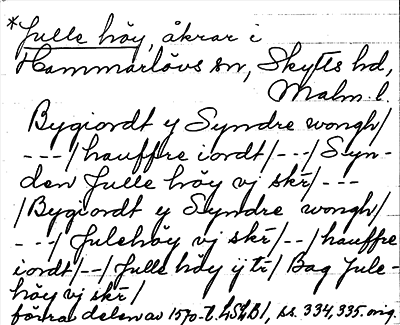 *Julle höy, åkrar i
Hammarlövs sn, Skytts hd,
Malm. l.
Bygiordt y Syndre wongh/
---/hauffre iordt/---/Syn-
den Julle höy vj skr/---
/Bygiordt y Syndre wongh/
---/Julehöy vj skr/--/hauffre
iordt/--/Julle höy ij tr/Bag Jule-
höy vj skr/
förra delen av 1570-t. LSLB1, ss. 334, 335. orig.